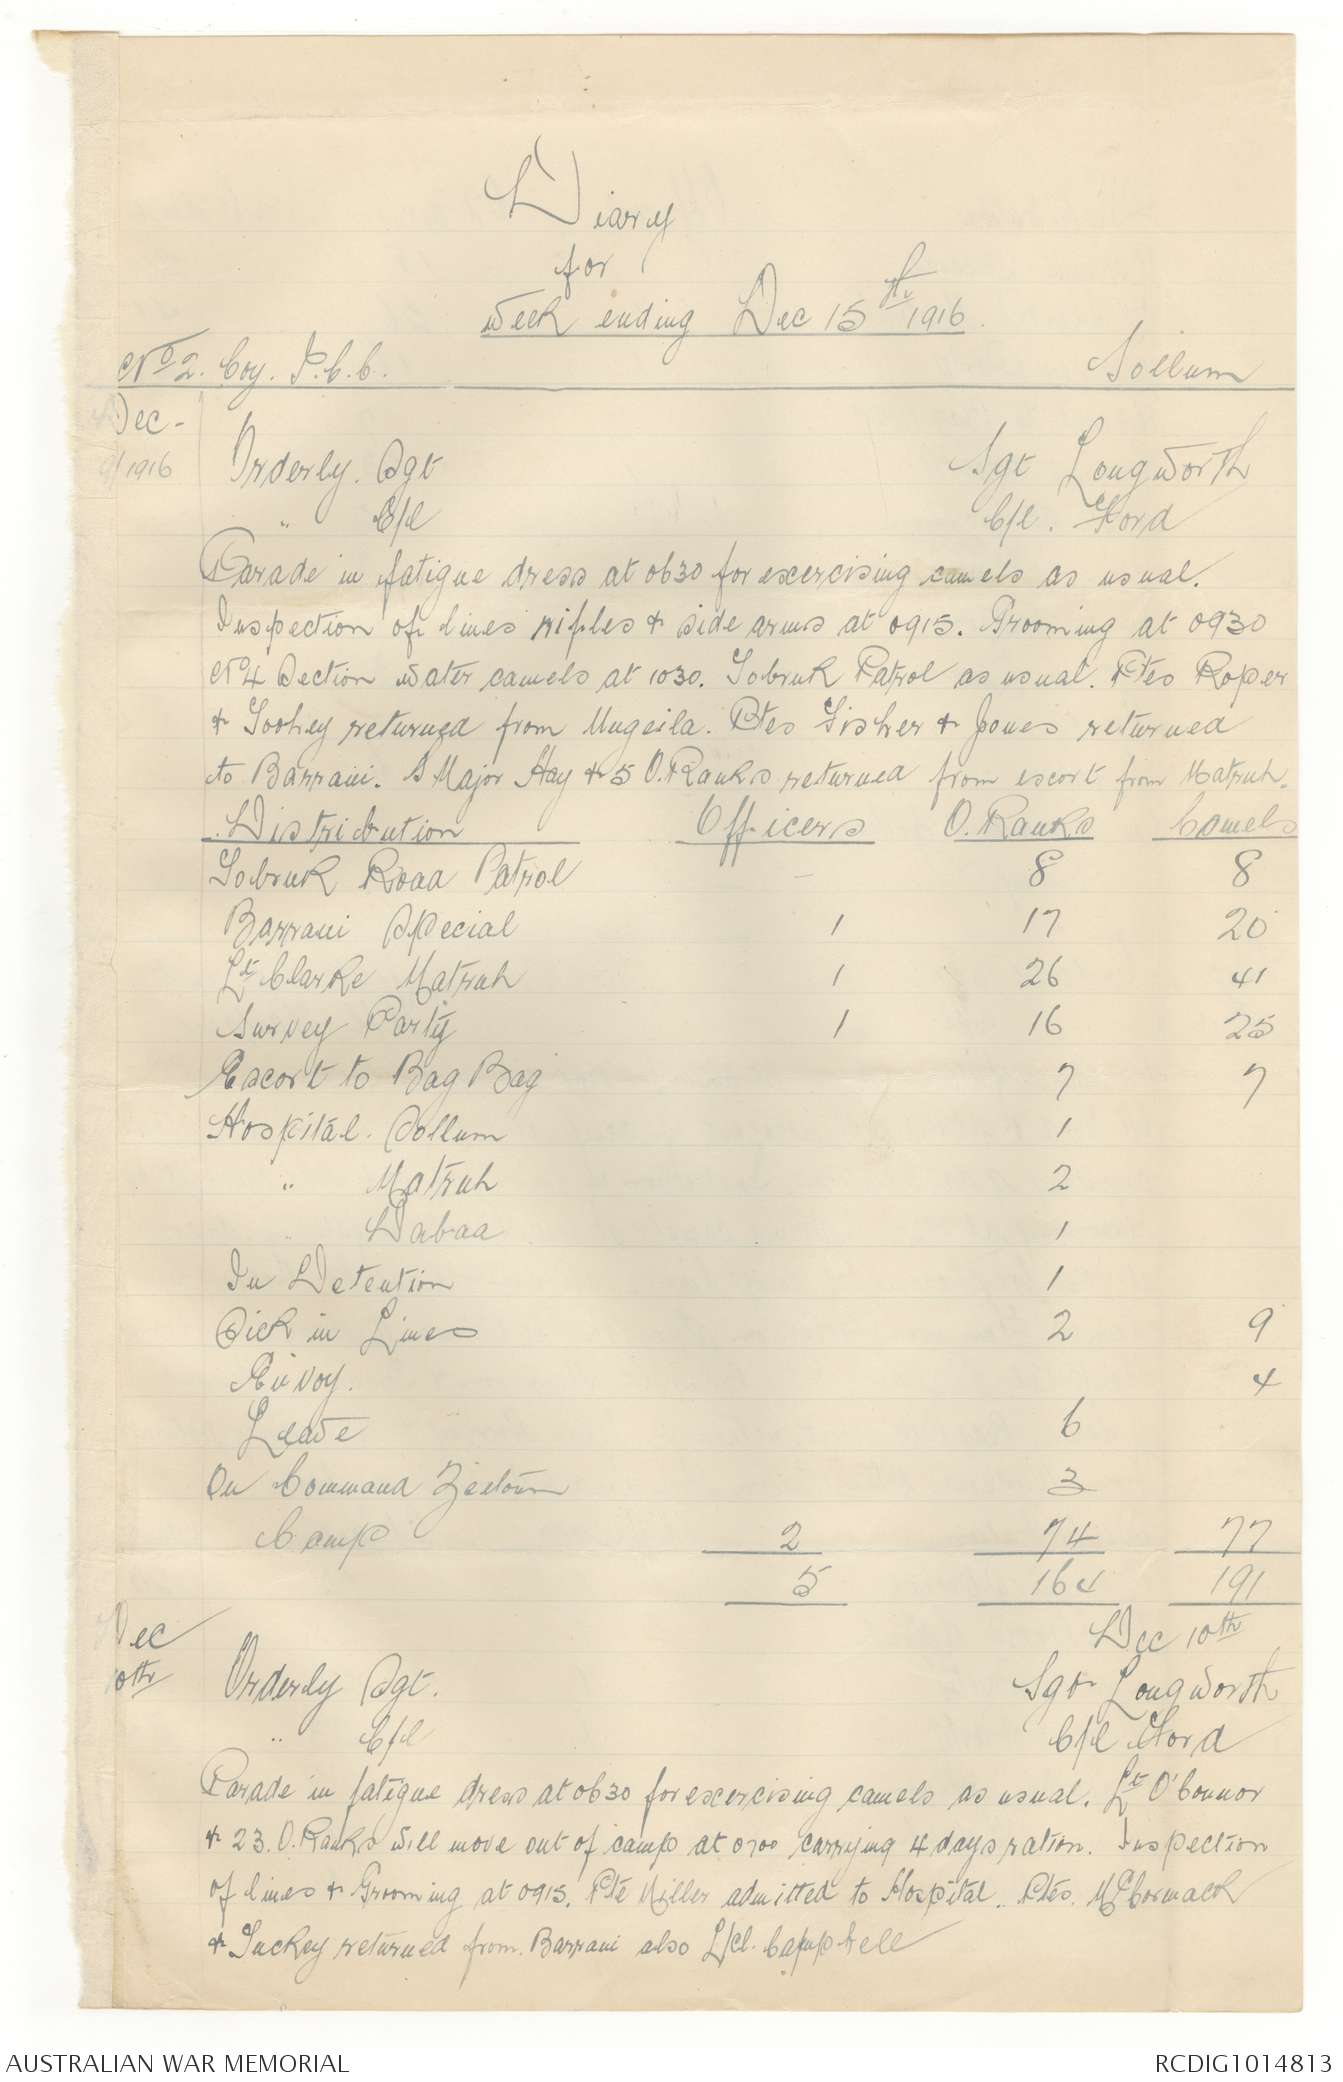 Diary
for
Week ending Dec 15th 1916.
No 2. Coy. I.C.C. Sollum
Dec -
9/1916 Orderly. Sgt Sgt Longworth
" C/l C/l. Ford
Parade in fatigue dress at 0630 for exercising camels as usual.
Inspection of lines rifles & side arms at 0915. Grooming at 0930
No 4 Section water camels at 1030. Tobruk Patrol as usual. Ptes Roper
& Toohey returned from Mugeila. Ptes Fisher & Jones returned
to Barrani. S Major Hay & 5 O.Ranks returned from escort from Matruh.
Distribution Officers O. Ranks Camels
Tobruk Road Patrol - 8 8
Barrani Special 1 17 20
Lt Clarke Matruh 1 26 41
Survey Party 1 16 25
Escort to Bag Bag 7 7
Hospital. Sollum 1
" Matruh 2
" Dabaa 1
In Detention 1
Sick in Lines 2 9
Envoy. 4
Leave 6
On Command Zeitoun 3
Camp 2 74 77
5 164 191
Dec Dec 10th
10th Orderly Sgt. Sgt Longworth
" C/l C/l Ford
Parade in fatigue dress at 0630 for exercising camels as usual. Lt O'Connor
& 23. O.Ranks will move out of camp at 0700 carrying 4 days ration. Inspection
of lines & Grooming at 0915. Pte Miller admitted to Hospital. Ptes. McCormack
& Tuckey returned from Barrani also L/cl. Campbell
AUSTRALIAN WAR MEMORIAL RCDIG1014813